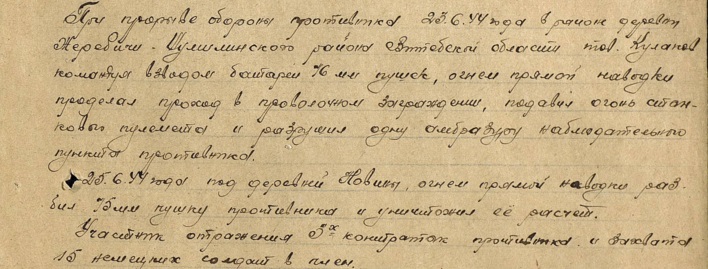 При прорыве обороны противника 23.6.44 года в районе деревни
Жеребичи - Шумилинского района Витебской области тов. Кулаков
командуя взводом батареи 76 мм пушек, огнем прямой наводки
проделал проход в проволочном заграждении, подавил огонь стан-
кового пулемета и разрушил одну амбразуру наблюдательного
пункта противника.
25.6.44 года под деревней Новики, огнем прямой наводки раз-
бил 75мм пушку противника и уничтожил её расчет.
Участник отражения 3х контратак противника и захвата
15 немецких солдат в плен.